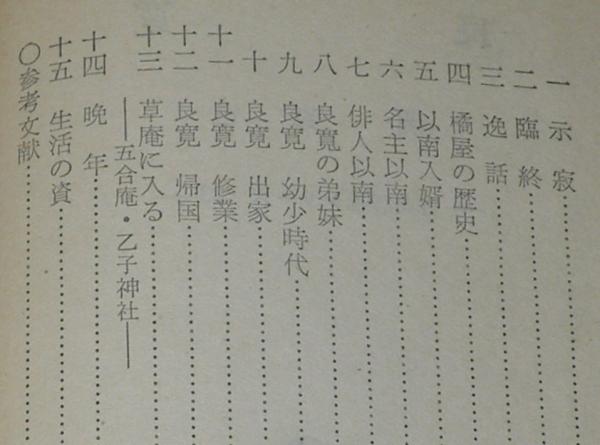 一 示寂
二 臨終
三 逸話
四 橘屋の歴史
五 以南入婿
六 名主以南
七 俳人以南
八 良寛の弟妹
九 良寛 幼少時代
十 良寛 出家
十一 良寛 修業
十二 良寛 帰国
十三 草庵に入る
――五合庵・乙子神社――
十四 晩年
十五 生活の資
〇参考文献